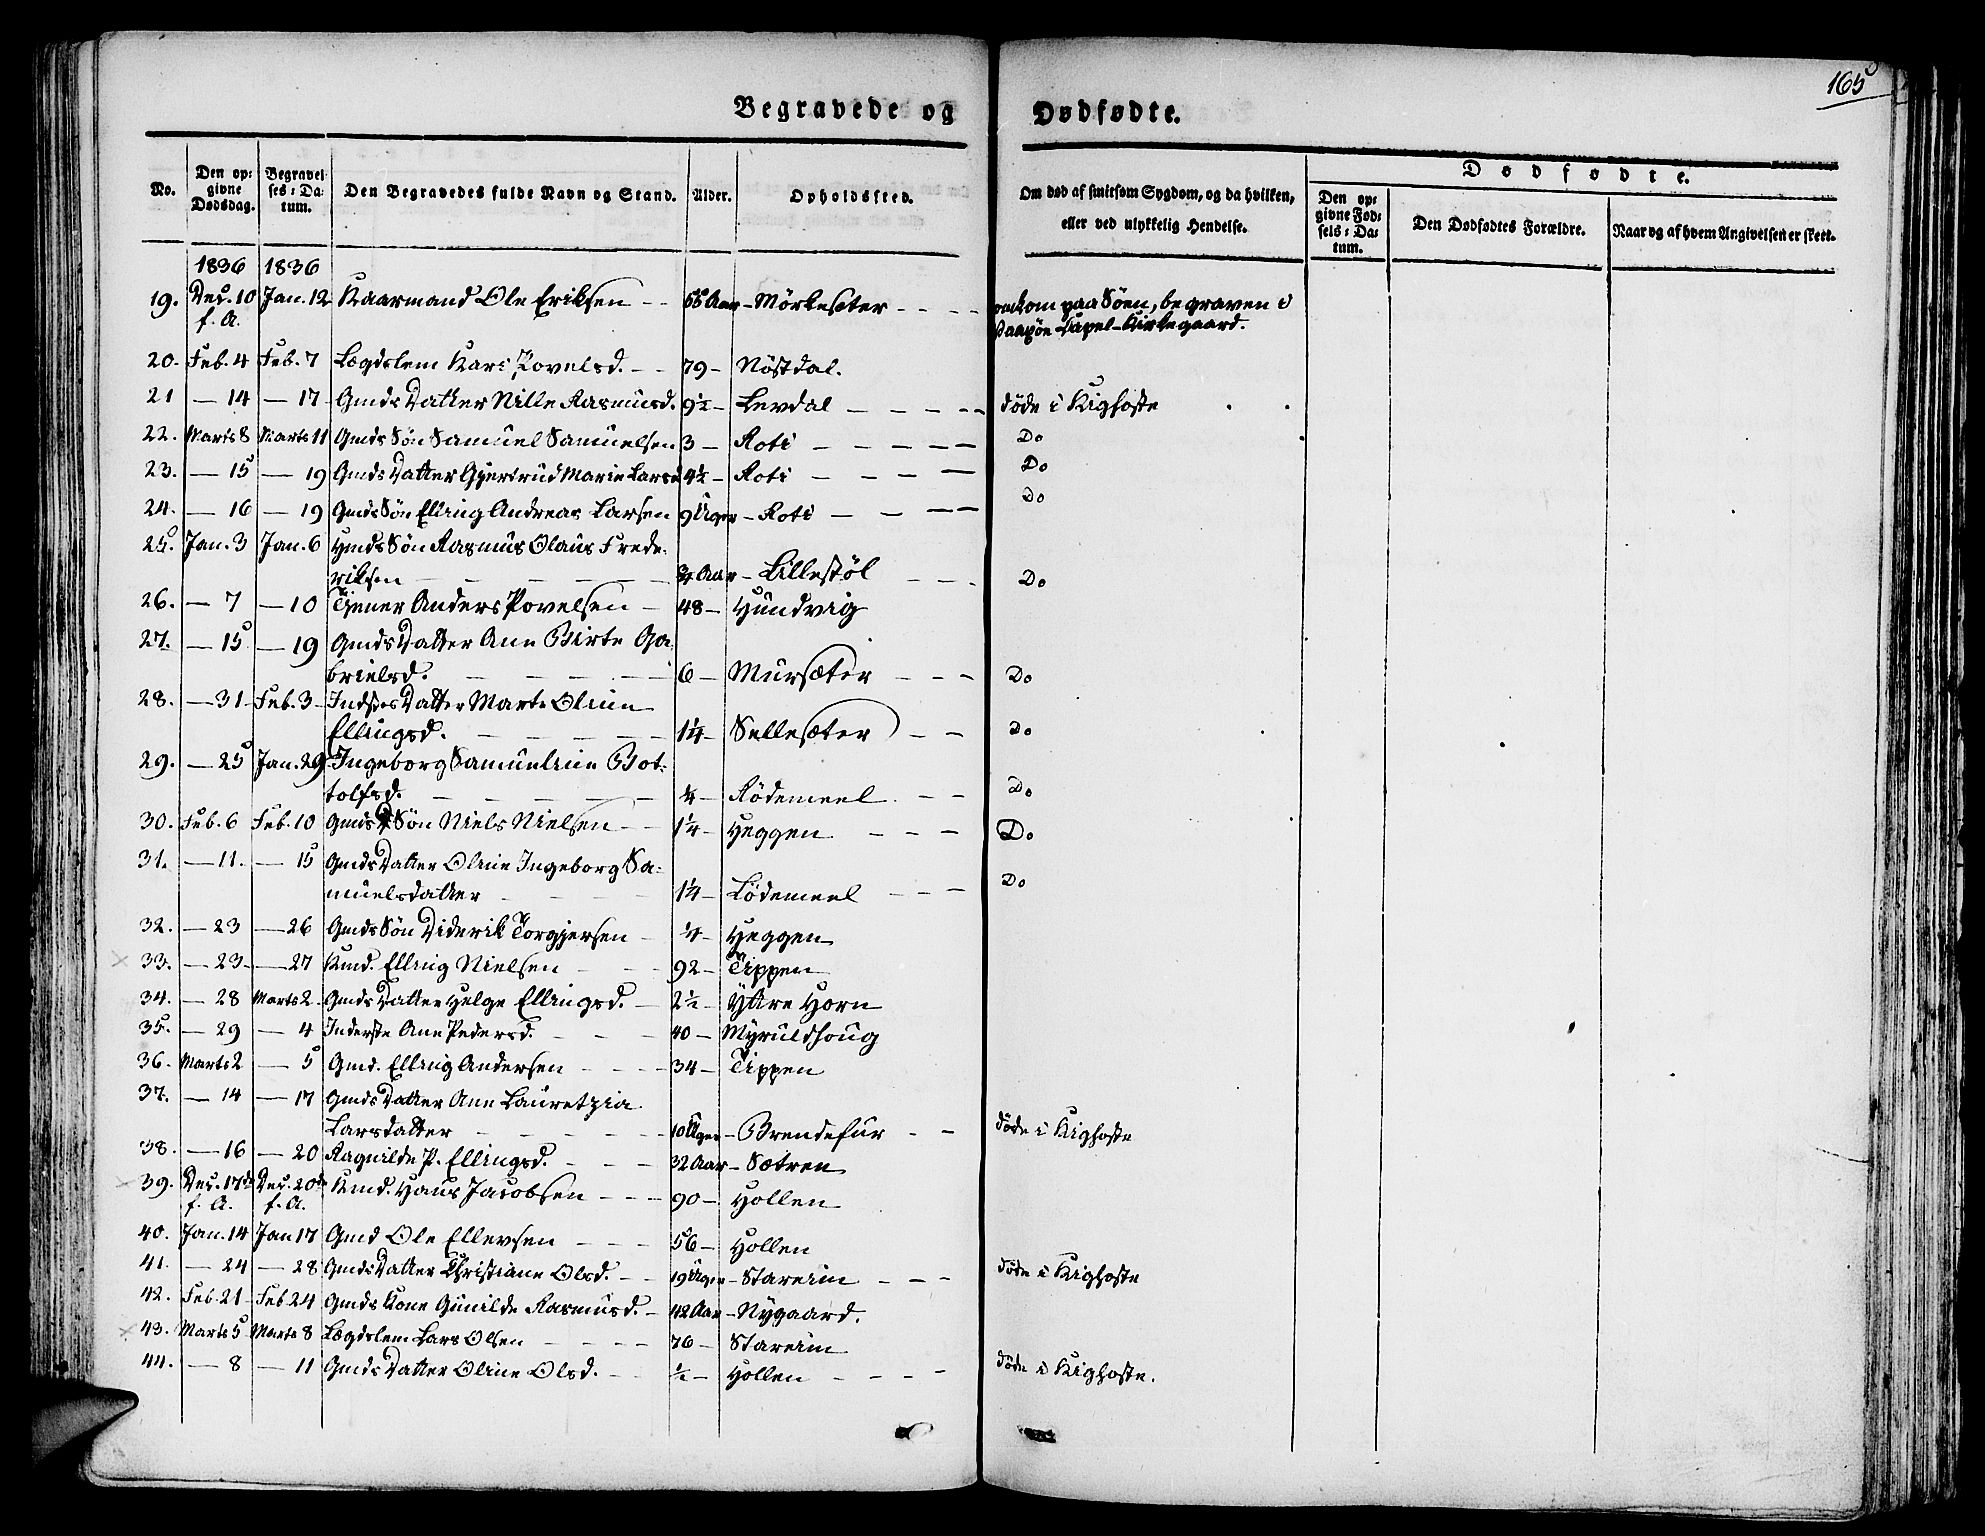 165
Begravede og Dødfødte.
No. | Den opgivne Dødsdag. | Begravelses-Datum. | Den Begravedes fulde Navn og Stand. | Alder. | Opholdssted. | Om død af smitsom Sygdom, og da hvilken, eller ved ulykkelig Hendelse. | Dødfødte.
Den opgivne Fødsels-Datum. | Den Dødfødtes Forældre. | Naar og af hvem Angivelsen er skeet.
1836 1836
19. Dec. 10 f. A. Jan. 12 Kaarmand Ole Eriksen — 55 Aar — Mörkesæter — omkom paa Söen, begraven i
Capel-Kirkegaard.
20. Feb. 4 Feb. 7 Lægdslem Kari Povelsd. — 79 — Nöstdal.
21 — 14 — 17 Gmds Datter Nille Rasmusd. 9½ — Levdal — döde i Kighoste
22. Marts 8 Marts 11 Gmds Sön Samuel Samuelsen 3 — Roti — Do
23. — 15 — 19 Gmds Datter Gjertrud Marie Larsd 4½ — Roti — Do
24. — 16 — 19 Gmds Sön Elling Andreas Larsen 9 Uger — Roti — Do
25. Jan. 3 Jan. 6 Hmds Sön Rasmus Olaus Frede-
riksen — ¾ Aar — Lillestöl — Do
26. — 7 — 10 Tjener Anders Povelsen — 48 — Hundvig
27. — 15 — 19 Gmds Datter Ane Birte Ga-
brielsd. — 6 — Mursæter — Do
28. — 31 Feb. 3 Indstes Datter Marte Oline
Ellingsd. — 1¼ — Sellesæter — Do
29. — 25 Jan. 29 Ingeborg Samueline Bot-
tolfsd. — ¼ — Rödemeel — Do
30. Feb. 6 Feb. 10 Gmds Sön Niels Nielsen — 1¼ — Heggen — Do
31. — 11. — 15 Gmds Datter Oline Ingeborg Sa-
muelsdatter — 1¼ — Lödemeel — Do
32. — 23 — 26 Gmds Sön Diderik Torgjersen — ¼ — Heggen
33. — 23 — 27 Kmd. Elling Nielsen — 92 — Tippen
34. — 28 Marts 2. Gmds Datter Helge Ellingsd. — 2½ — Yttre Horn
35. — 29 — 4 Inderste Ane Pedersd. — 40 — Myruldhoug
36. Marts 2 — 5 Gmd. Elling Andersen — 34 — Tippen
37. — 14 — 17 Gmds Datter Ane Lauretzia
Larsdatter — 10 Uger — Brendefur — döde i Kighoste
38. — 16 — 20 Ragnilde P. Ellingsd. — 32 Aar — Sætren
39. Dec. 17de f. A. Dec. 20de f. A. Kmd. Hans Jacobsen — 90 — Hollen
40. Jan. 14 Jan 17 Gmd Ole Ellevsen — 56 — Hollen
41. — 24 — 28 Gmds Datter Christiane Olsd. — 19 Uger — Stareim — döde i Kighoste
42. Feb. 21 Feb. 24 Gmds Kone Gunilde Rasmusd. — 42 Aar — Nygaard.
43. Marts 5 Marts 8 Lægdslem Lars Olsen — 76 — Stareim
44. — 8 — 11 Gmds Datter Oline Olsd. — ½ — Hollen — döde i Kighoste.